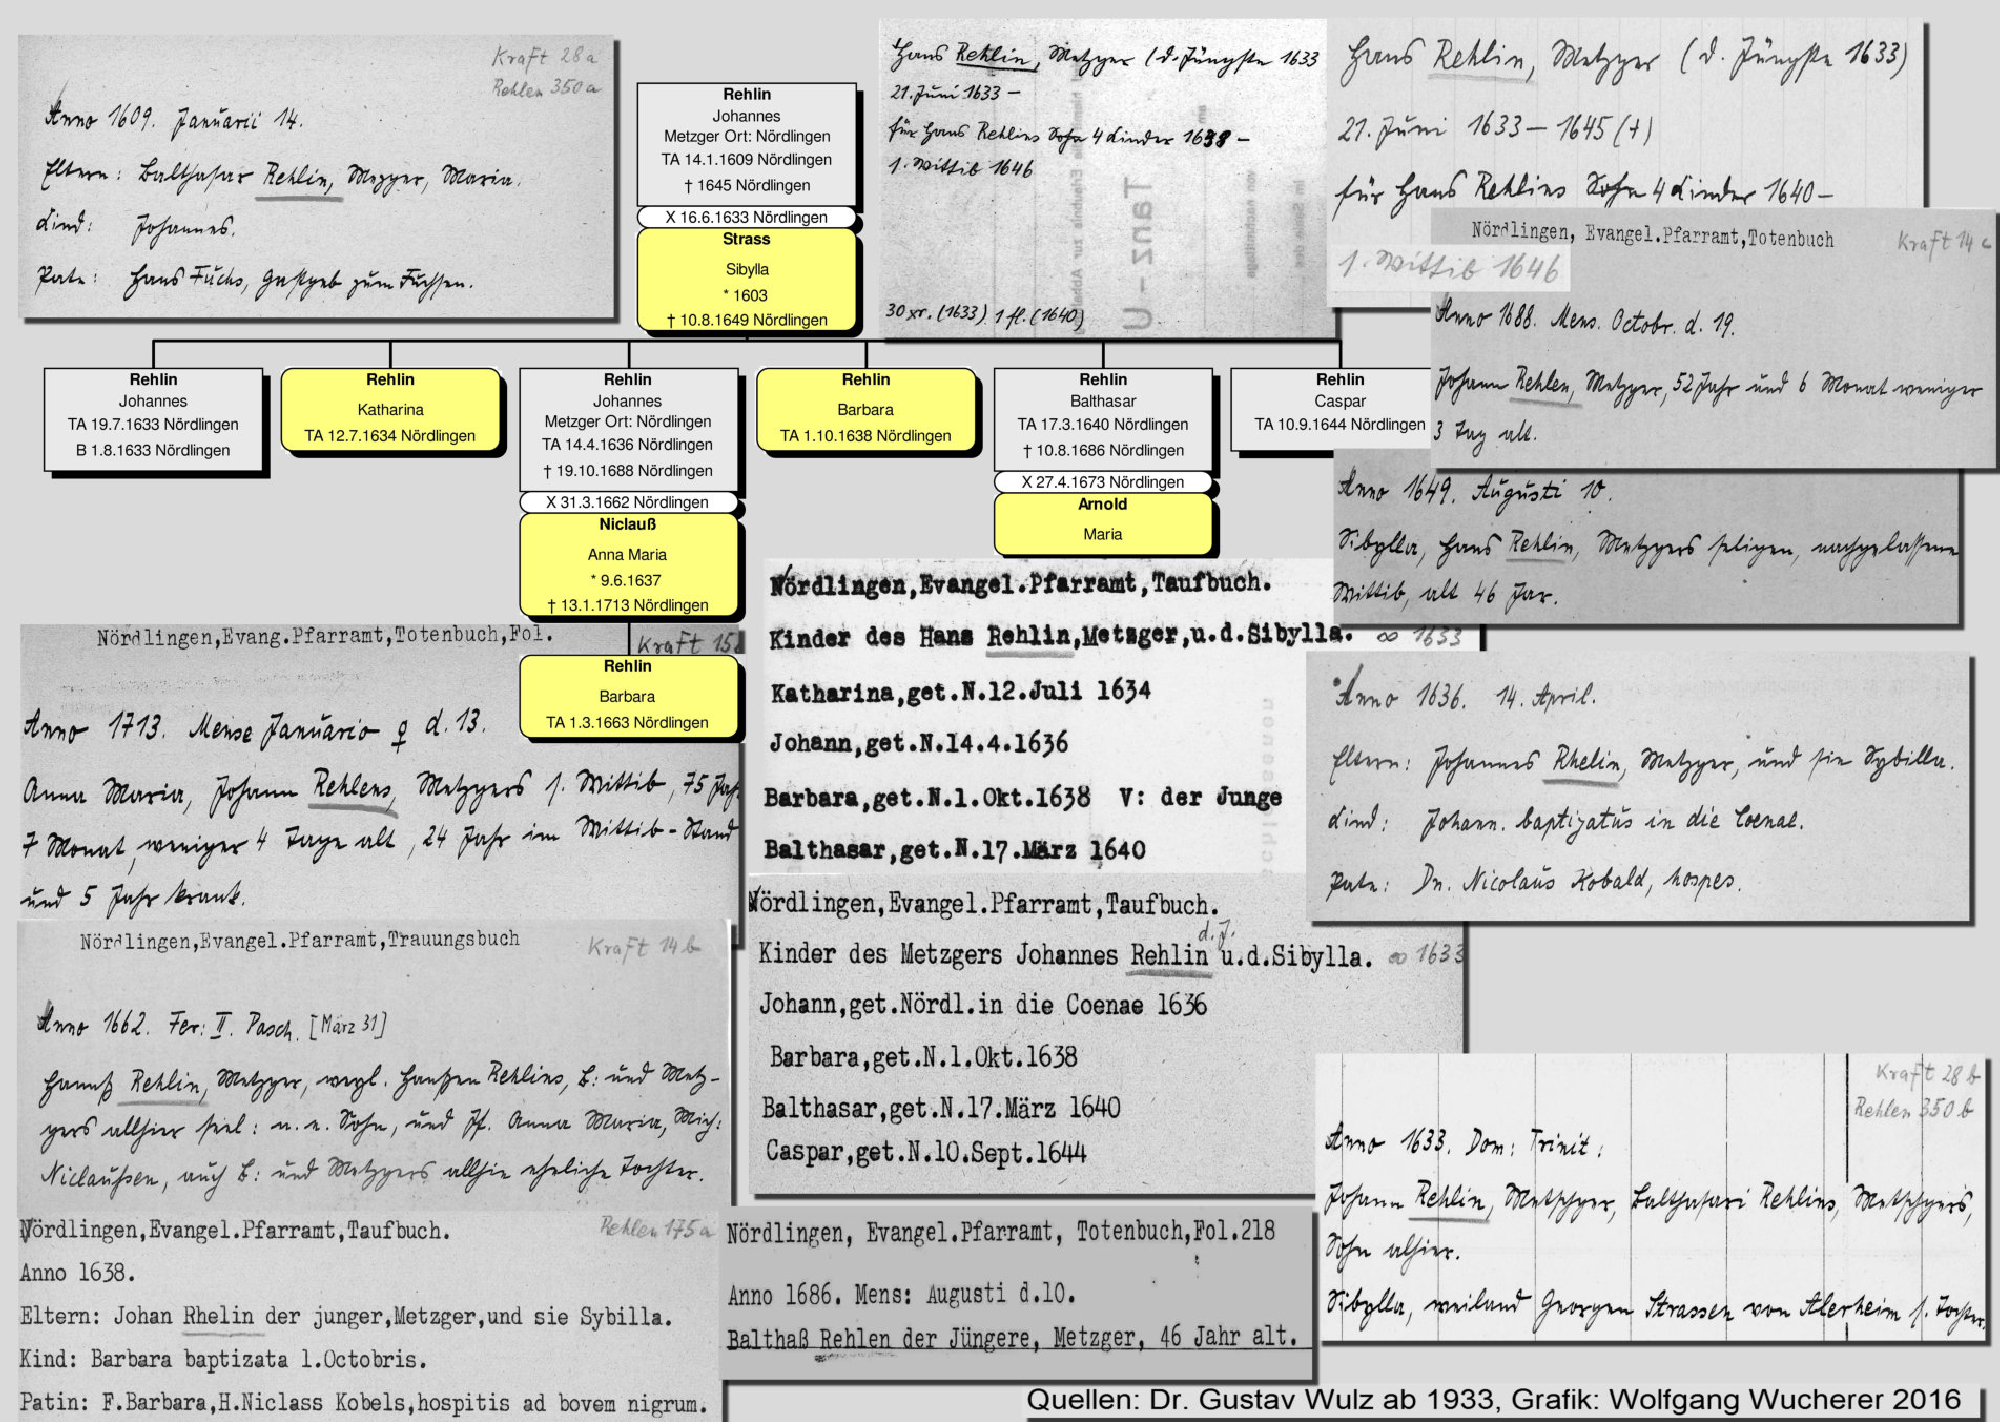 Kraft 28a
Rehlen 350a
Anno 1609. Januarii 14.
Eltern: Balthasar Rehlin, Metzger, Maria.
Kind: Johannes.
Pate: Hans Fuchs, Gastgeb zum Fuchsen.
Rehlin
Johannes
Metzger Ort: Nördlingen
TA 14.1.1609 Nördlingen
† 1645 Nördlingen
X 16.6.1633 Nördlingen
Strass
Sibylla
* 1603
† 10.8.1649 Nördlingen
Hans Rehlin, Metzger (d. Jüngste 1633
21. Juni 1633 –
für Hans Rehlins Sohn 4 Kinder 1638 –
1. Wittib 1646
30 xr. (1633) 1 fl. (1640)
Tanz-U
Hans Rehlin, Metzger (d. Jüngste 1633)
21. Juni 1633 – 1645 (+)
für Hans Rehlins Sohn 4 Kinder 1640 –
1. Wittib 1646
Nördlingen, Evangel.Pfarramt,Totenbuch
Kraft 14 c
Anno 1688. Mens. Octobr. d. 19.
Johann Rehlen, Metzger, 52 Jahr und 6 Monat weniger
3 Tag alt.
Rehlin
Johannes
TA 19.7.1633 Nördlingen
B 1.8.1633 Nördlingen
Rehlin
Katharina
TA 12.7.1634 Nördlingen
Rehlin
Johannes
Metzger Ort: Nördlingen
TA 14.4.1636 Nördlingen
† 19.10.1688 Nördlingen
X 31.3.1662 Nördlingen
Niclauß
Anna Maria
* 9.6.1637
† 13.1.1713 Nördlingen
Rehlin
Barbara
TA 1.3.1663 Nördlingen
Rehlin
Barbara
TA 1.10.1638 Nördlingen
Rehlin
Balthasar
TA 17.3.1640 Nördlingen
† 10.8.1686 Nördlingen
X 27.4.1673 Nördlingen
Arnold
Maria
Rehlin
Caspar
TA 10.9.1644 Nördlingen
Anno 1649. Augusti 10.
Sibylla, Hans Rehlin, Metzgers seligen, nachgelassene
Wittib, alt 46 Jar.
Nördlingen,Evang.Pfarramt,Totenbuch,Fol.
Kraft 15
Anno 1713. Mense Januario ♀ d. 13.
Anna Maria, Johann Rehlens, Metzgers s. Wittib, 75 Jahr
7 Monat weniger 4 Tage alt, 24 Jahr im Wittib-Stand
und 5 Jahr krank.
Nördlingen,Evangel.Pfarramt,Taufbuch.
Kinder des Hans Rehlin,Metzger,u.d.Sibylla. ∞ 1633
Katharina,get.N.12.Juli 1634
Johann,get.N.14.4.1636
Barbara,get.N.1.Okt.1638 V: der Junge
Balthasar,get.N.17.März 1640
Anno 1636. 14. April.
Eltern: Johannes Rhelin, Metzger, und sie Sybilla.
Kind: Johann. baptizatus in die Coenae.
Pate: Dn. Nicolaus Kobald, hospes.
Nördlingen,Evangel.Pfarramt,Taufbuch.
d.J.
Kinder des Metzgers Johannes Rehlin u.d.Sibylla. ∞ 1633
Johann,get.Nördl.in die Coenae 1636
Barbara,get.N.1.Okt.1638
Balthasar,get.N.17.März 1640
Caspar,get.N.10.Sept.1644
Nördlingen,Evangel.Pfarramt,Trauungsbuch
Kraft 14 b
Anno 1662. Fer: II. Pasch. [März 31]
Hannß Rehlin, Metzger, weyl. Hanßen Rehlins, B: und Metz-
gers allhier seel: n. e. Sohn, und Jf. Anna Maria, Mich:
Niclaußen, auch B: und Metzgers allhie eheliche Tochter.
Nördlingen,Evangel.Pfarramt,Taufbuch.
Rehlen 175a
Anno 1638.
Eltern: Johan Rhelin der junger,Metzger,und sie Sybilla.
Kind: Barbara baptizata 1.Octobris.
Patin: F.Barbara,H.Niclass Kobels,hospitis ad bovem nigrum.
Nördlingen, Evangel.Pfarramt, Totenbuch,Fol.218
Anno 1686. Mens: Augusti d.10.
Balthaß Rehlen der Jüngere, Metzger, 46 Jahr alt.
Kraft 28 b
Rehlen 350 b
Anno 1633. Dom: Trinit:
Johann Rehlin, Metschger, Balthasari Rehlins, Metschgers,
Sohn alhier.
Sibylla, weiland Georgen Strassen von Alerheim s. Tochter.
Quellen: Dr. Gustav Wulz ab 1933, Grafik: Wolfgang Wucherer 2016